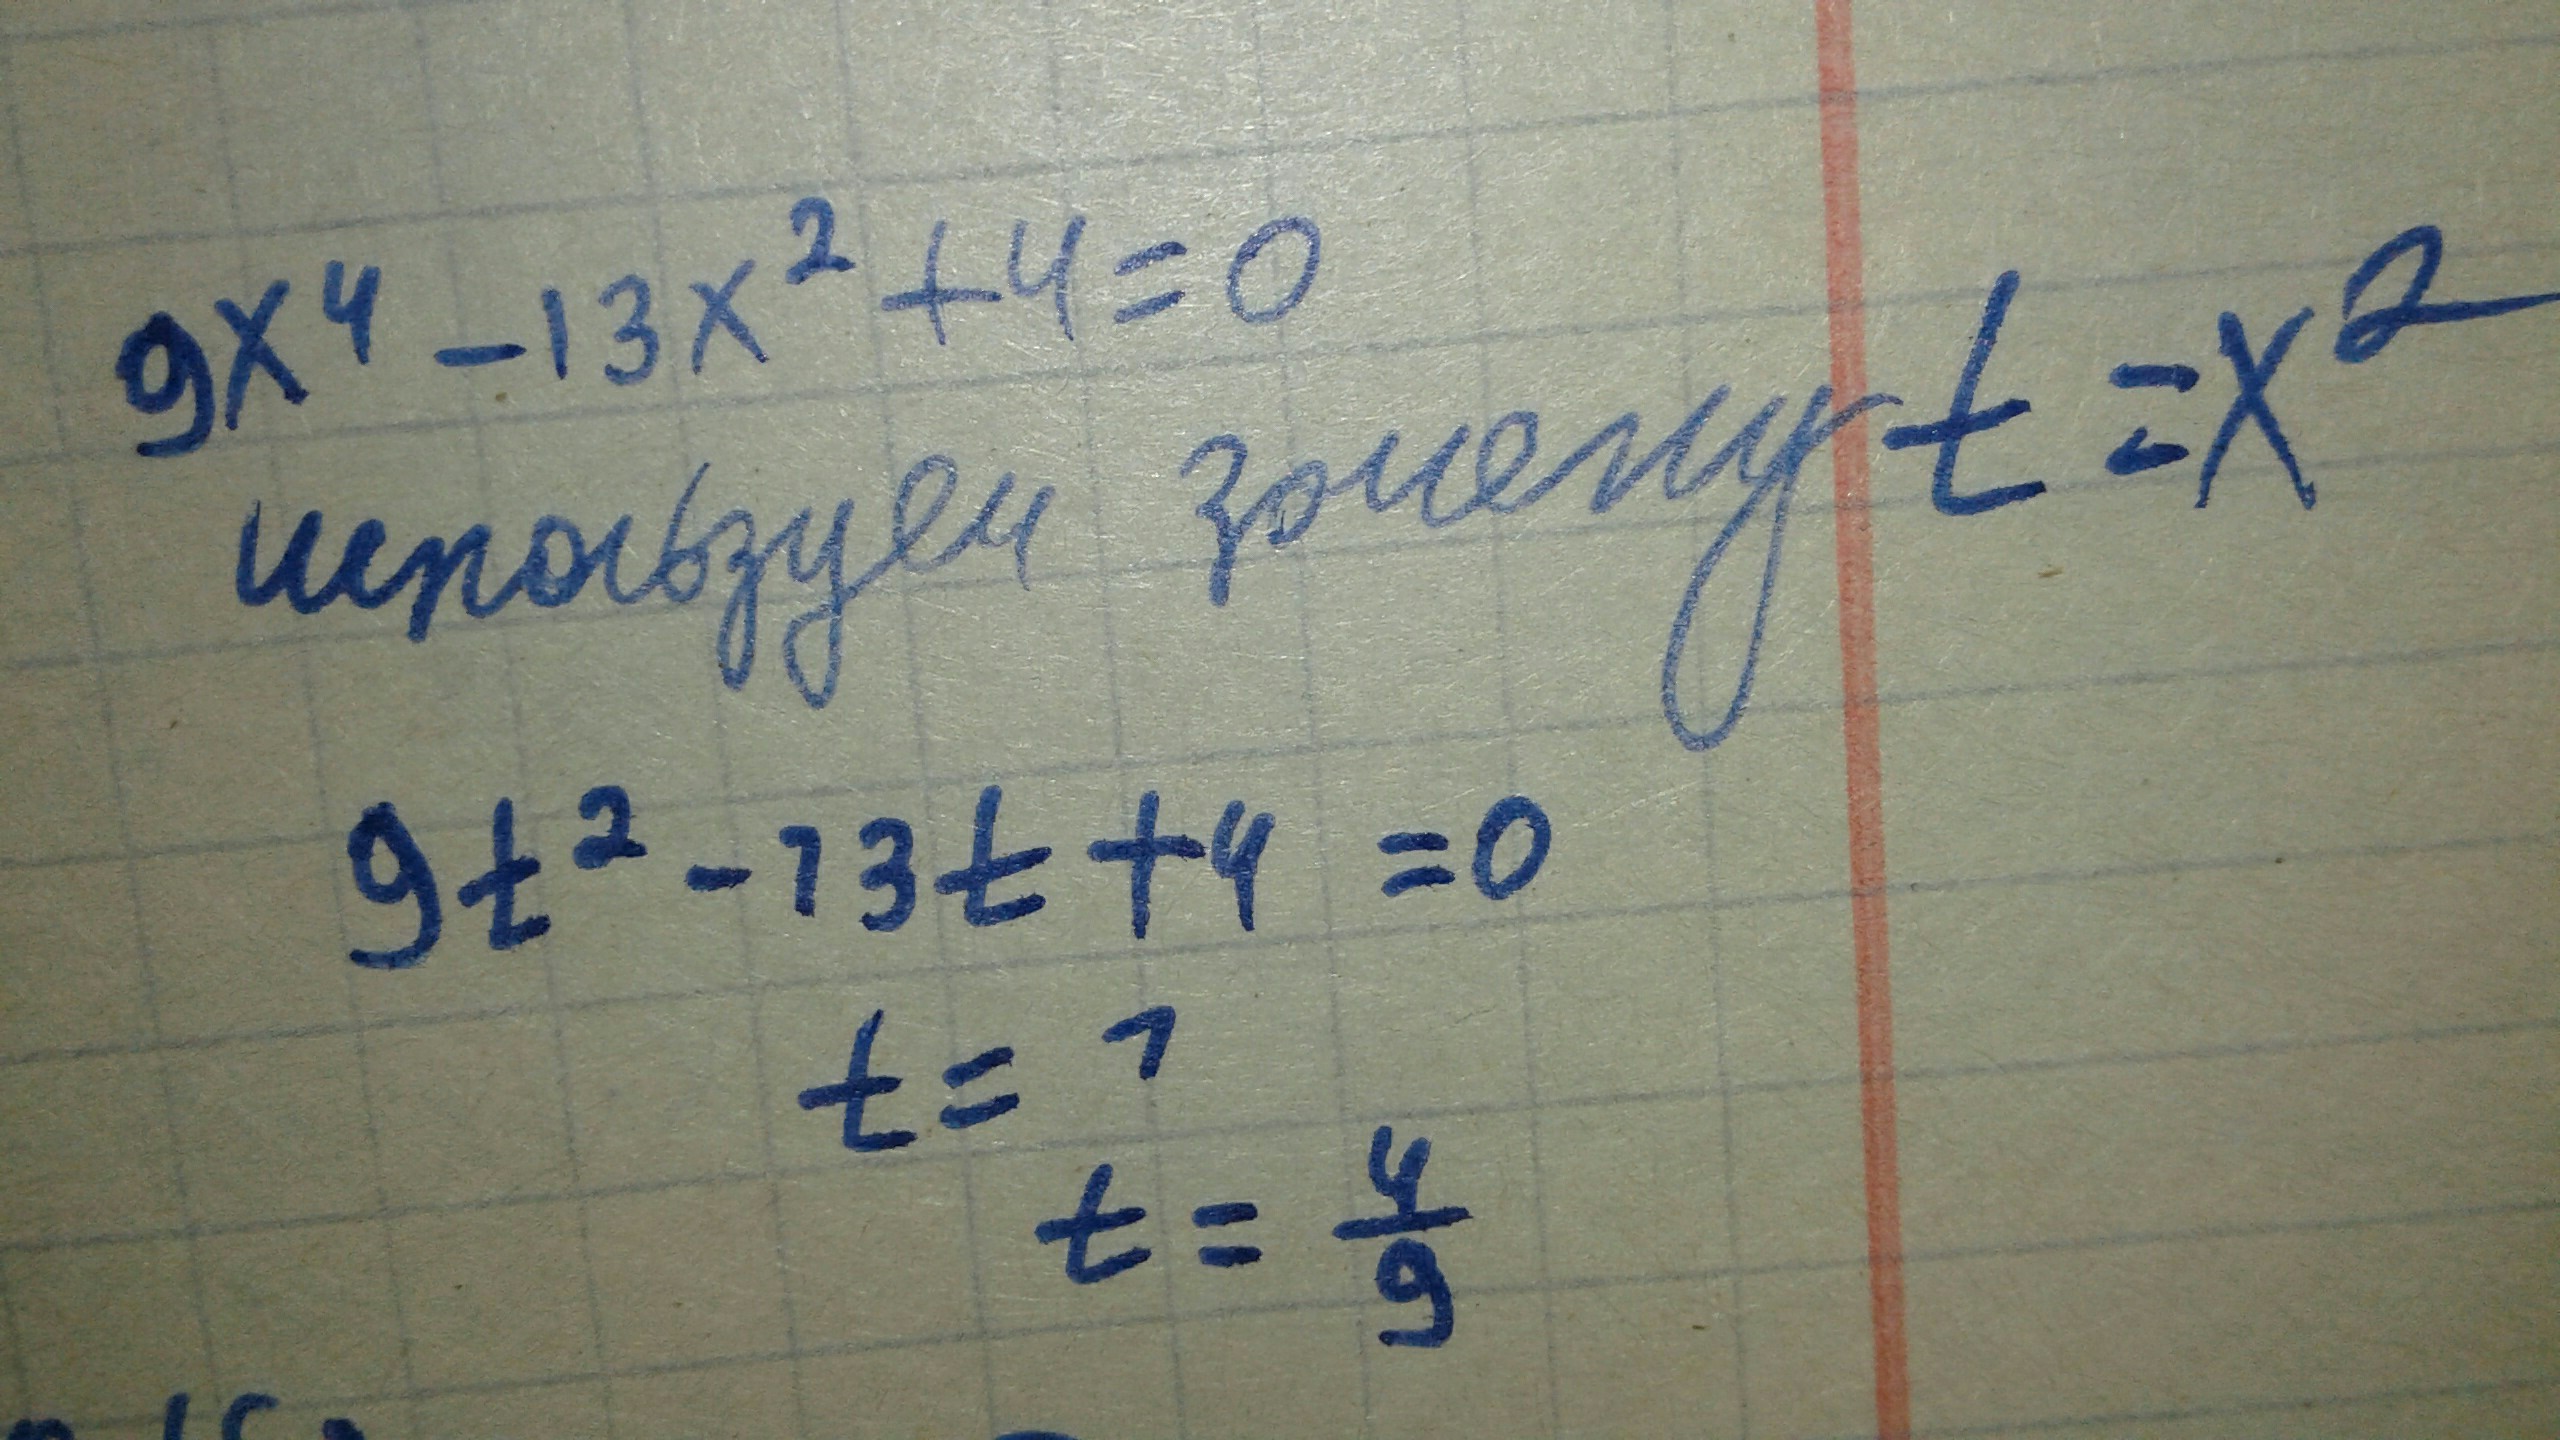 9x⁴ -13x² +4=0
используем замену t = x²
9t² -13t +4 =0
t = 1
t = 4/9